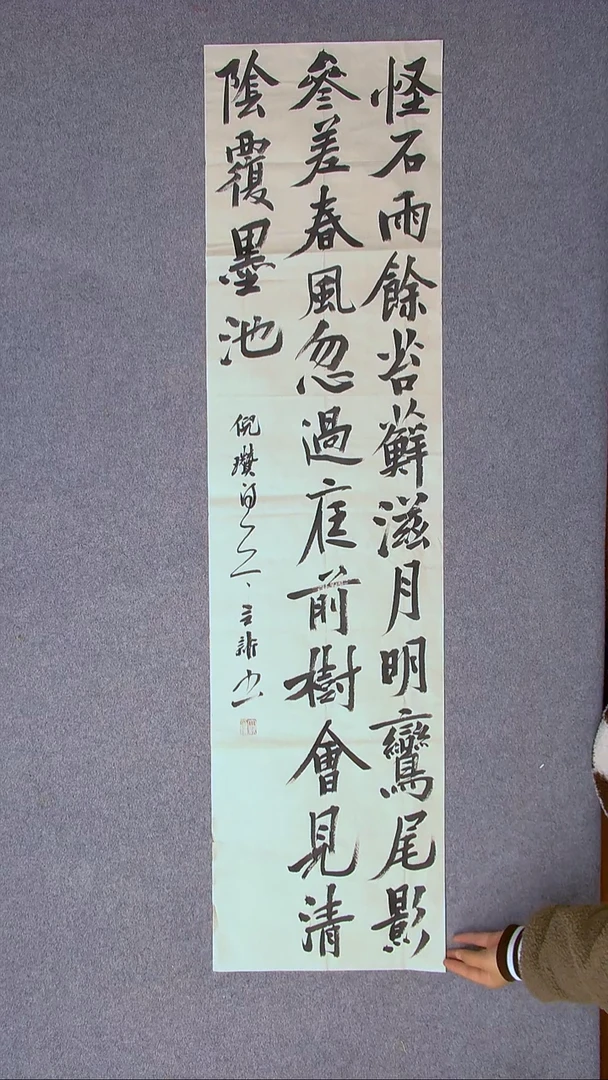 怪石雨餘苔蘚滋月明鸞尾影
參差春風忽過庭前樹會見清
陰覆墨池
倪瓚詩一二
書